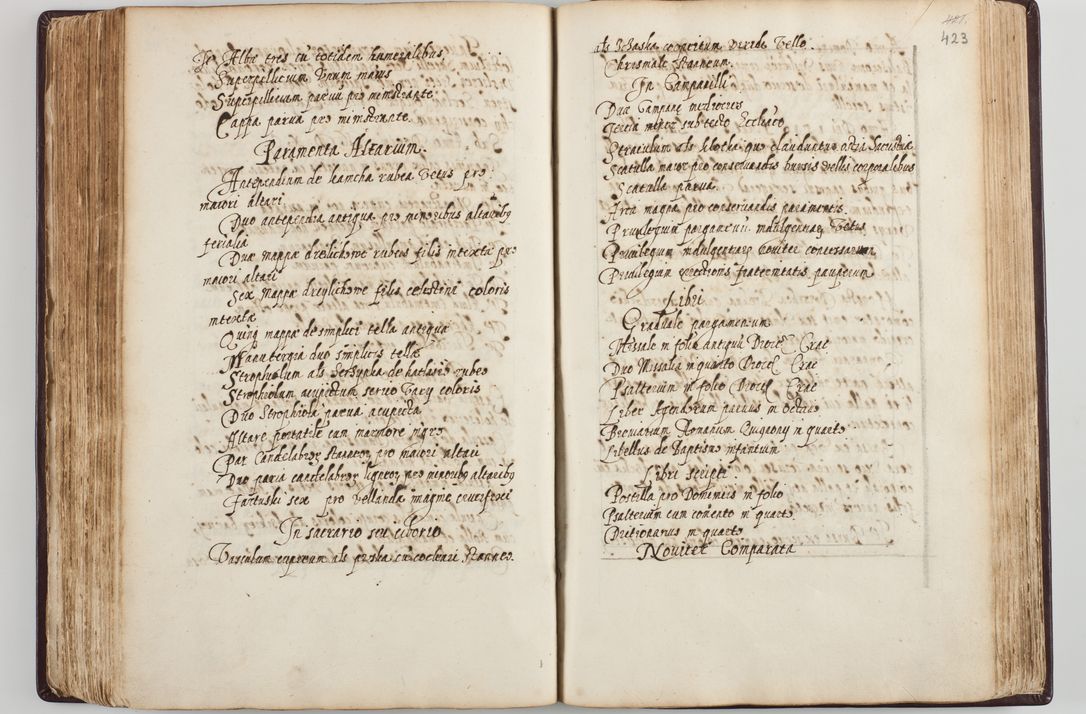 Albæ tres cū totidem humeralibus
Superpellicium Unum maius
Superpellicium parvū pro ministrante
Cappa parva pro ministrante.
Paramenta Altarium.
Antependium de kamcha rubea Vetus pro
maiori altari
Duo antependia antiqua pro minoribus altaribꝫ
ferialia
Duæ mappæ drelichowe rubeis filis intextæ pro
maiori altari
Sex mappæ dreylichowe filis celestini coloris
intextæ
Quinq mappæ de simplici tella antiquæ
Manutergia duo simplicis tellæ
Strophiolum als de kathaiæ rubeo
Strophiolum acupictum serico Vary coloris
Duo Strophiola parva acupicta
Altare portatile cum marmore nigro
Par Candelabrorꝫ pro maiori altari
Duo paria candelabrorꝫ ligneorꝫ pro minoribꝫ altaribꝫ
Fartuski sex pro vellanda magine crucifixi
In sacrario seu ciborio
Vasculum cupreum als puska cū cocleari stanneo.
423
coopertum Viride Vello
Chrismale stanneum.
In Campanilli
Duæ Campanæ mediocres
Tercia minor sub tecto Ecclesiæ
als klothka quo clauduntur ostia Sacristiæ
Scatulla maior pro conservandis bursis vellis corporalibus
Scatulla parva.
Arca magna pro conservandis paramentis.
Privilegium pargameni: indulgentiarꝫ Vetus
Privilegium indulgentiarꝫ noviter conversarum
Privilegium erectionis fraternitatis pauperum
Libri
Graduale pargamenium
Missale in folio antiquū Dioces Crac
Duo Missalia in quarto Dioces Crac
Psalterium in folio Dioces Crac
Liber Agendorum parvus in octavo
Breviarium Romanum Quignony in quarto
Libellus de Baptismo infantium
Libri scripti
Postilla pro Dominicis in folio
Psalterium cum comento in quarto
Dictionarius in quarto
Noviter Comparata